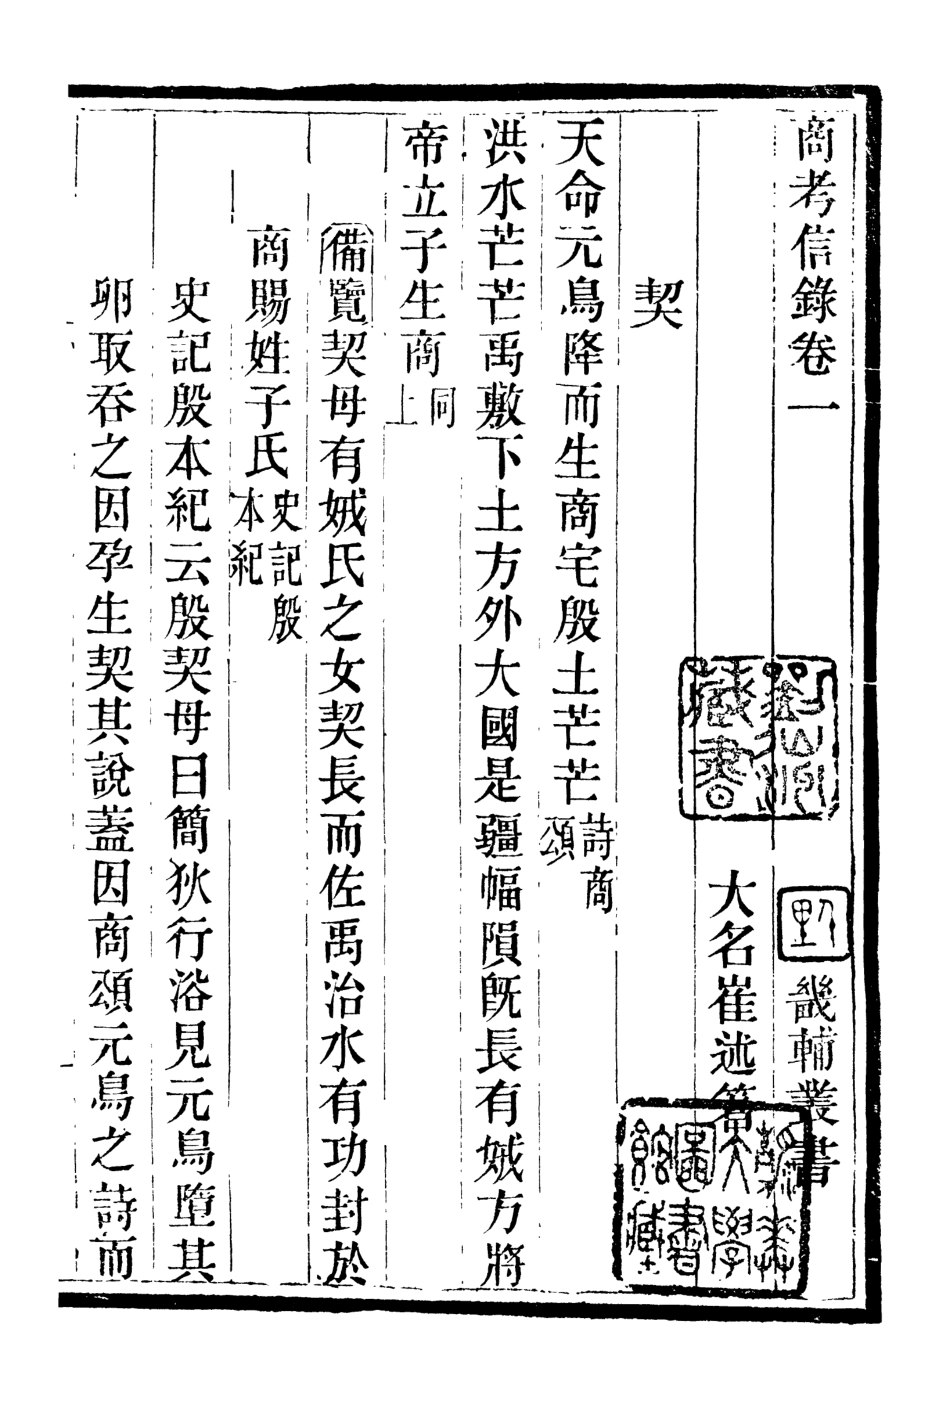 商考信錄卷一
畿輔叢書
大名崔述篹
契
天命元鳥降而生商宅殷土芒芒詩商頌
洪水芒芒禹敷下土方外大國是疆幅隕既長有娀方將
帝立子生商同上
備覽契母有娀氏之女契長而佐禹治水有功封於
商賜姓子氏史記殷本紀
史記殷本紀云殷契母曰簡狄行浴見元鳥墮其
卵取吞之因孕生契其說蓋因商頌元鳥之詩而
大學圖書館藏
藏書
野